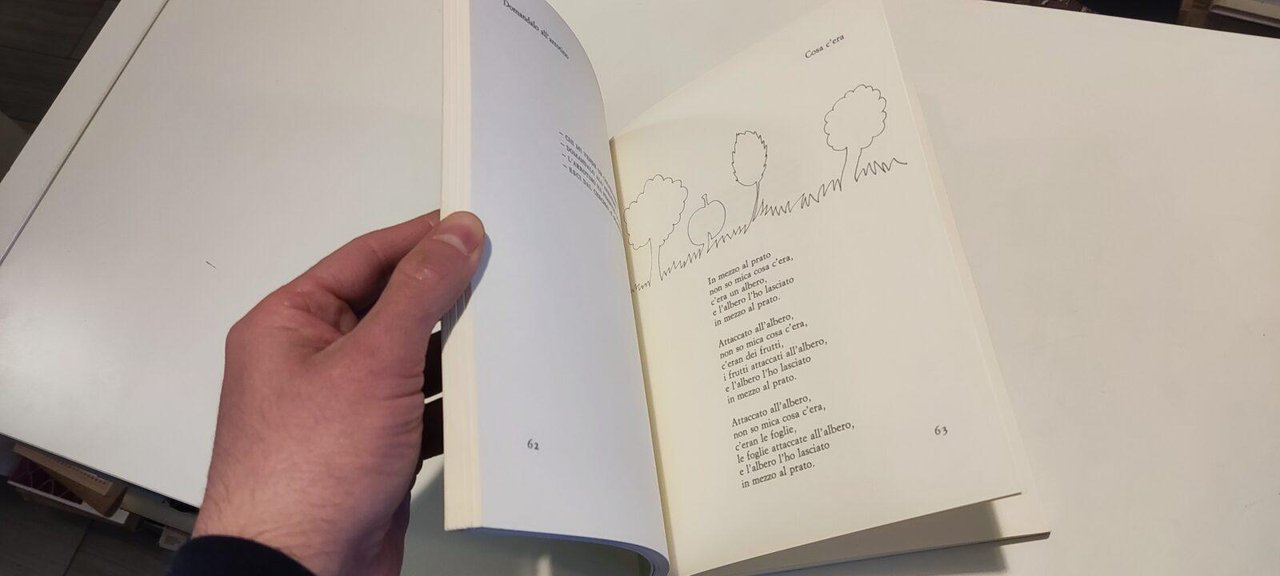 Domandalo all'arrotino
– CHI MI
– DOMANDALO
– L'ARROTINO
– ESCI DAL
62
Cosa c'era
In mezzo al prato
non so mica cosa c'era,
c'era un albero,
e l'albero l'ho lasciato
in mezzo al prato.
Attaccato all'albero,
non so mica cosa c'era,
c'eran dei frutti,
i frutti attaccati all'albero,
e l'albero l'ho lasciato
in mezzo al prato.
Attaccato all'albero,
non so mica cosa c'era,
c'eran le foglie,
le foglie attaccate all'albero,
e l'albero l'ho lasciato
in mezzo al prato.
63